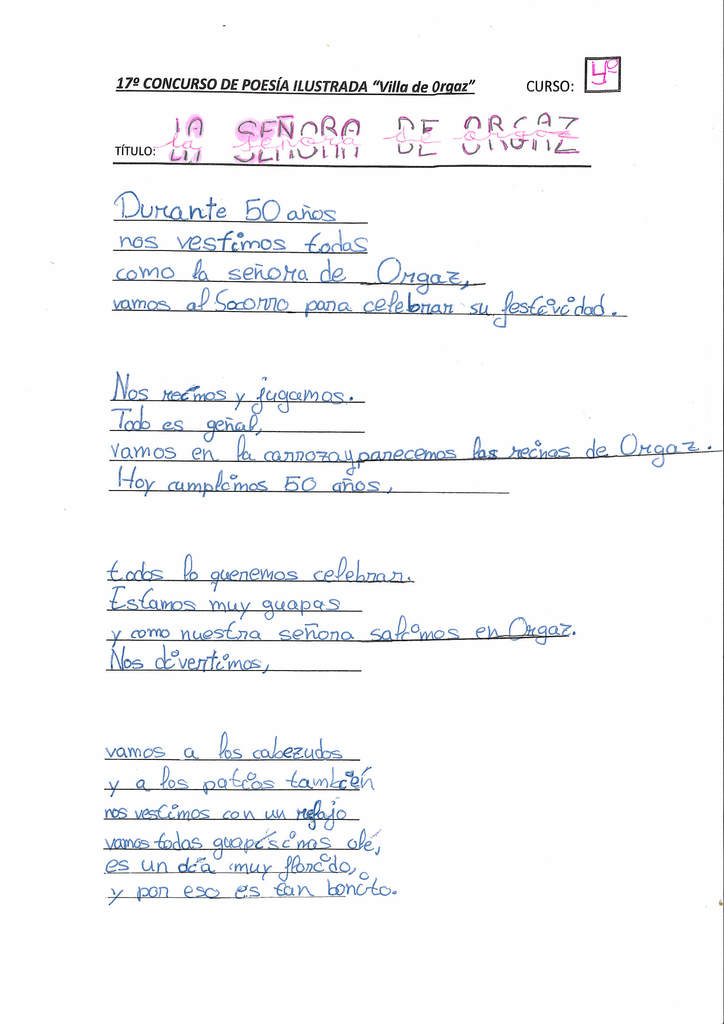 17º CONCURSO DE POESÍA ILUSTRADA “Villa de Orgaz”
CURSO: 4º
TÍTULO: LA SEÑORA DE ORGAZ
la señora de orgaz
Durante 50 años
nos vestimos todas
como la señora de Orgaz,
vamos al Socorro para celebrar su festividad.
Nos reimos y jugamos.
Todo es geñal,
vamos en la carroza y parecemos las reinas de Orgaz.
Hoy cumplimos 50 años,
todos lo queremos celebrar.
Estamos muy guapas
y como nuestra señora salimos en Orgaz.
Nos divertimos,
vamos a los cabezudos
y a los patios también
nos vestimos con un refajo
vamos todas guapísimas olé,
es un día muy florido,
y por eso es tan bonito.